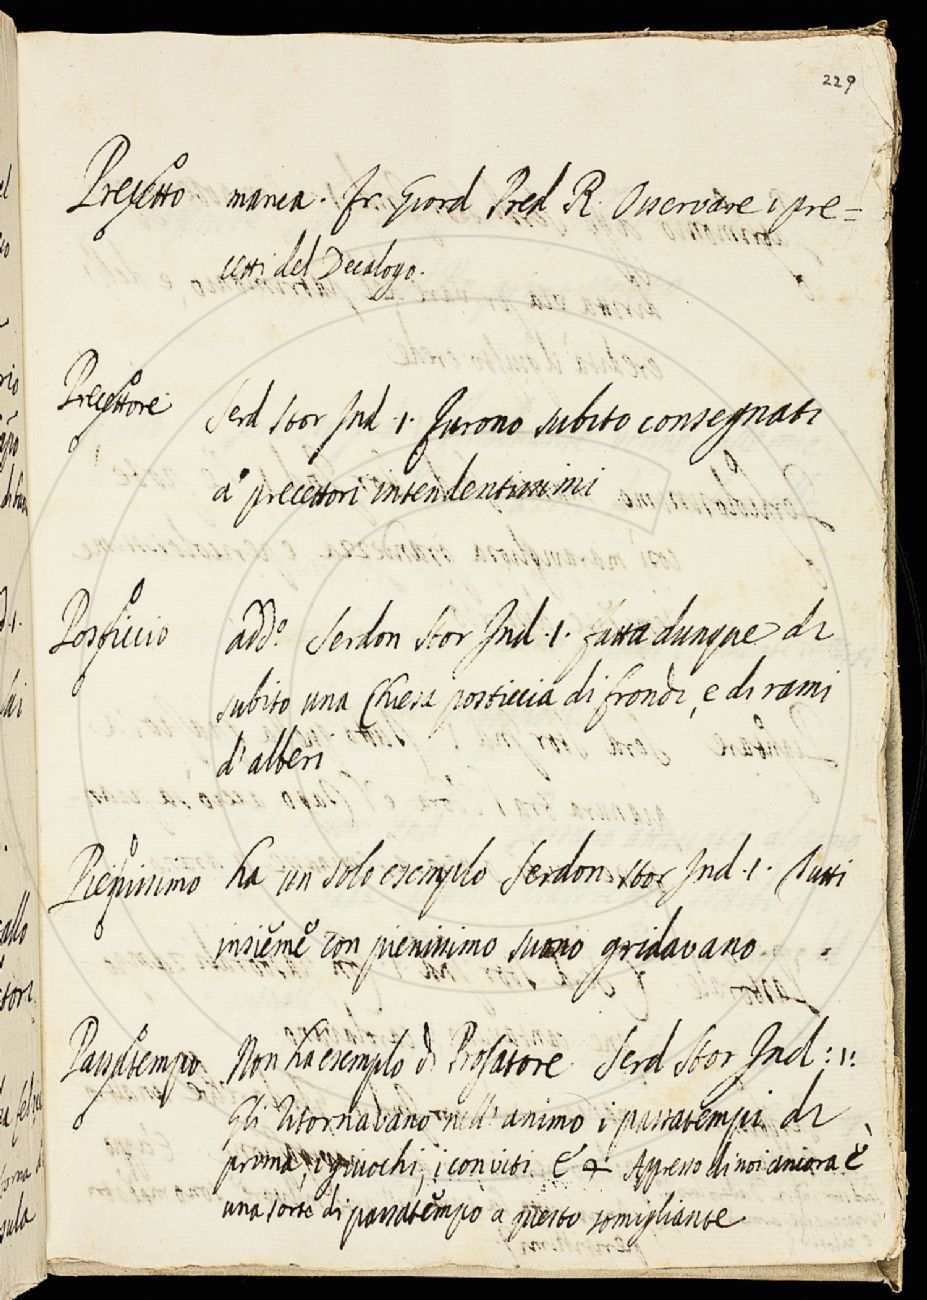 229
Precetto manca. Fr. Giord Pred R. Osservare i pre=
cetti del Decalogo.
Precettore Serd Stor Ind 1. Furono subito consegnati
a precettori intendentissimi
Posticcio add.° Serdon Stor Ind. 1. fatta dunque di
subito una Chiesa posticcia di frondi, e di rami
d'alberi
Pienissimo ha un solo esempio Serdon. Stor Ind. 1. Tutti
insieme con pienissimo suono gridavano
Passatempo Non ha esempio di Prosatore Serd Stor Ind: 1:
Gli ritornavano nell'animo i passatempi di
prima, i giuochi, i conviti E + Appresso di noi ancora è
una sorte di passatempo a questo somigliante